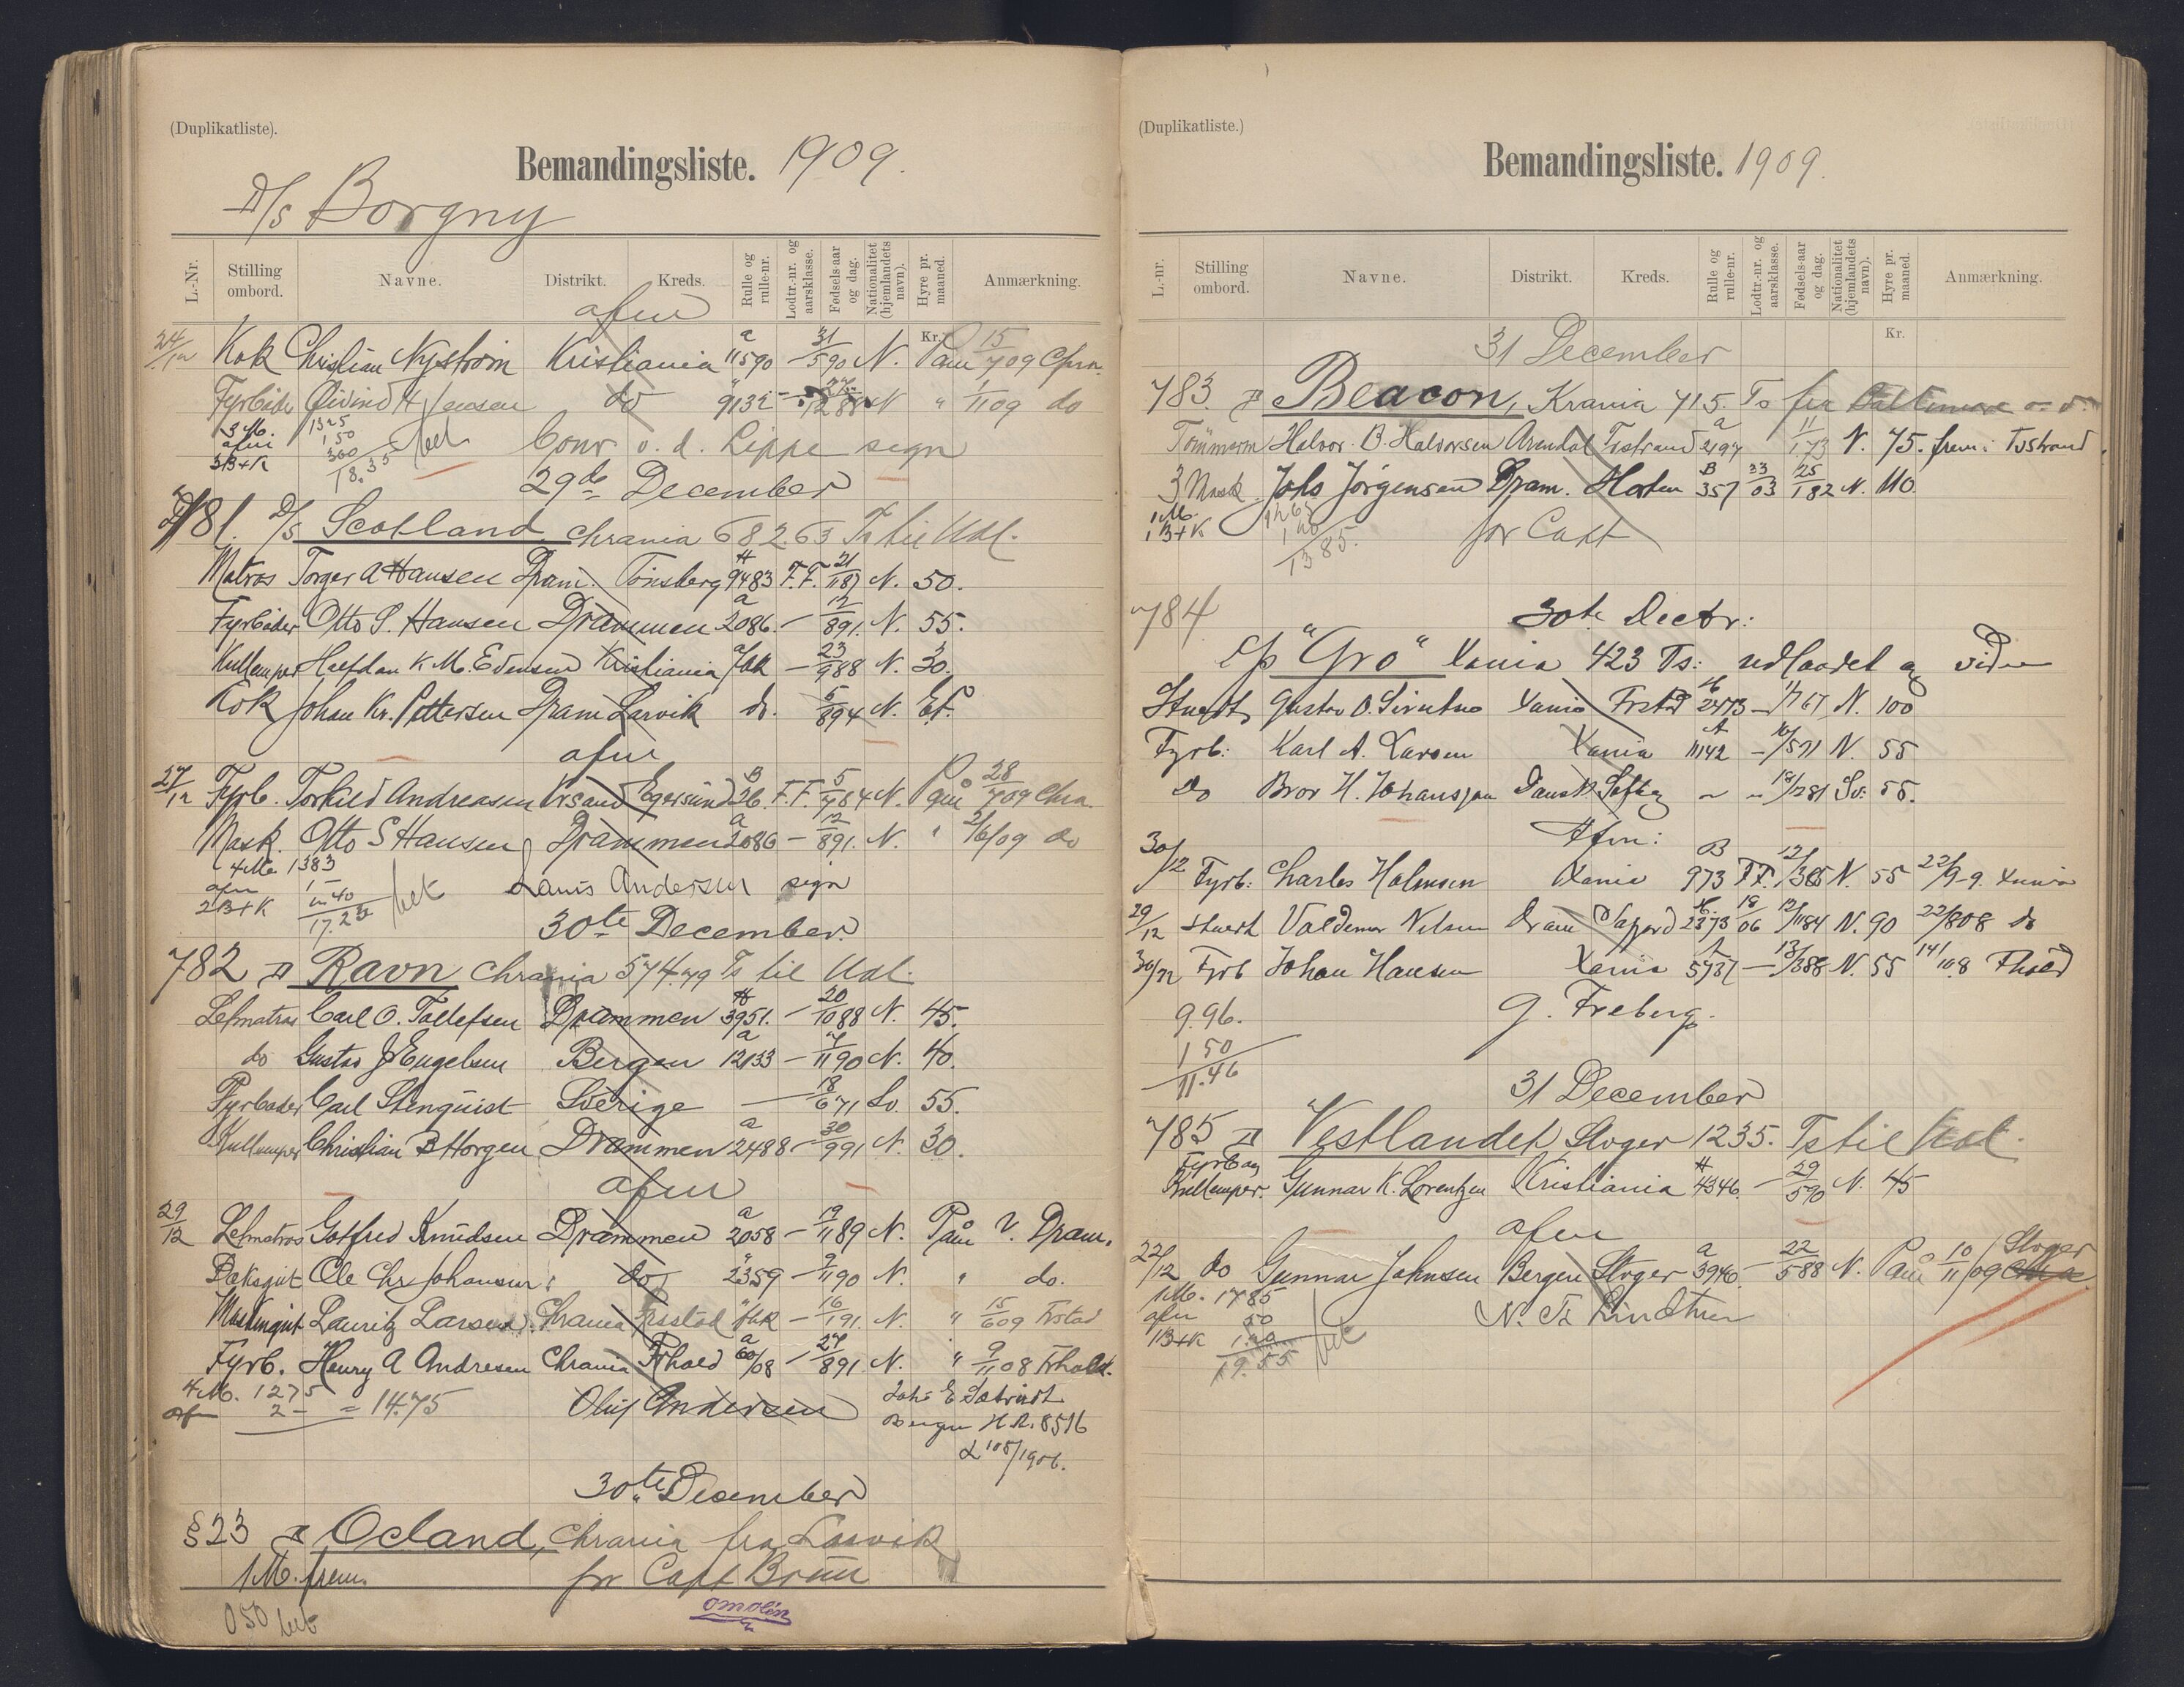 (Duplikatliste).
Bemandingsliste. 1909.
D/s Borgny
L.-Nr. Stilling ombord. Navne. Distrikt. Kreds. Rulle og rulle-nr. Lodtr.-nr. og aarsklasse. Fødsels-aar og dag. Nationalitet (hjemlandets navn). Hyre pr. maaned. Anmærkning.
afm
Kr.
24/12 Kok Christian Nystrøm Kristiania a 11590 – 31/5 90 N. Påm 15/7 09 Chra.
Fyrbøder Øivind H Jensen do " 9132 – 27/12 88 N " 1/11 09 do
3 M. 1325
afm 1.50
3B+K 360
18.35 bet
Conr v. d. Lippe sign
29de December
781. D/s Scotland Chrania 682.63 Ts til Udl.
Matros Torger A Hansen Dram. Tønsberg H 9483 F.F. 21/11 87 N. 50.
Fyrbøder Otto S. Hansen Drammen a 2086. – 12/8 91. N. 55.
Kullemper Halfdan K. M. Edensen Kristiania – 23/9 88 N. 30.
Kok Johan Kr. Pettersen Dram Larvik do. 5/8 94 N.
afm
27/12 Fyrb. Torkild Andreasen Krsand Egersund B 26. F.F. 5/7 84 N. Påm 28/7 09 Chra.
Mask. Otto S Hansen Drammen a 2086 – 12/8 91. N. " 2/6/09 do
4 M. 1383
afm 1 –
2B+K 2.40
17.23 bet
Lauis Andersen sign
30te December
782 D Ravn Chrania 574.79 Ts til Udl.
Letmatros Carl O. Tollefsen Drammen H 3951. – 20/10 88 N. 45.
do Gustav J Engelsen Bergen a 12133 – 7/11 90 N. 40.
Fyrbøder Carl Stenquist Sverige – 18/6 71 Sv. 55.
Kullemper Christian B Horgen Drammen a 2488 – 30/9 91 N. 30.
afm
29/12 Letmatros Gotfred Knudsen Drammen a 2058 – 19/11 89 N. Påm V. Dram.
Dæksgut Ole Chr Johansen do " 2359 – 9/11 90 N. " do.
Maskingut Lauritz Larsen Chrania Frstad – 16/1 91. N. " 15/6 09 Frstad
Fyrb. Henry A Andresen Chrania Frhald a 60/08 – 27/8 91 N. " 9/11 08 Frhald.
4 M. 1275
afm 2 – = 14.75
Oluf Andersen
Bergen H R. 8516
L 105/1906.
30te December
§ 23 D Ocland, Chrania fra Larvik
1 M. frem. for Capt Bruu
050 bet
(Duplikatliste.)
Bemandingsliste. 1909.
L.-nr. Stilling ombord. Navne. Distrikt. Kreds. Rulle og rulle-nr. Lodtr.-nr. og aarsklasse. Fødsels-aar og dag. Nationalitet (hjemlandets navn). Hyre pr. maaned. Anmærkning.
Kr.
31 December
783. D Beacon, Krania 715. Ts fra Baltimore o. d.
Tömmerm Halvor B. Halvorsen Arendal Tvstrand a 2197 11/1 73 N. 75. frem i Tvstrand.
3 Mask Johs Jörgensen Dram. Horten B 357 33/03 25/1 82 N. 110.
1 M. 1265
1B+K 1 20
1385.
for Capt
784
30te Decbr:
"Gro" Xania 423 Ts: udlaadet og videre
Stuert Gustav O. Xania Frstd H 2473 – 1/7 67 N. 100
Fyrb: Karl A. Larsen Xania A 11142 – 10/5 91 N. 55
Do Bror H. Johansson Dansk – – 18/2 81 Sv: 55.
Afm:
30/12 Fyrb: Charles Halmsen Xania B 973 F.F. 12/3 85 N. 55 22/9–9. Xania
29/12 Stuert Valdemar Nilsen Dram H 2373 18/06 12/11 84 N. 90 22/8 08 do
30/12 Fyrb Johan Hansen Xania A 5737 – 13/3 88 N. 55 14/10.8 Fhald
9.96.
1 50
11.46
G. Freberg.
31 December
785 D Vestlandet Stvger 1235. Ts til Udl.
Fyrb og Kullemper. Gunnar K. Lorentzen Kristiania H 4346. – 29/5 90 N. 45
afm
22/12 do Gunnar Johnsen Bergen Stvger a 3940 – 22/5 88 N. Påm 10/11/09 Stvger Chra
1 M. 1785
afm 50
1B+K 1.20
19.55 bet